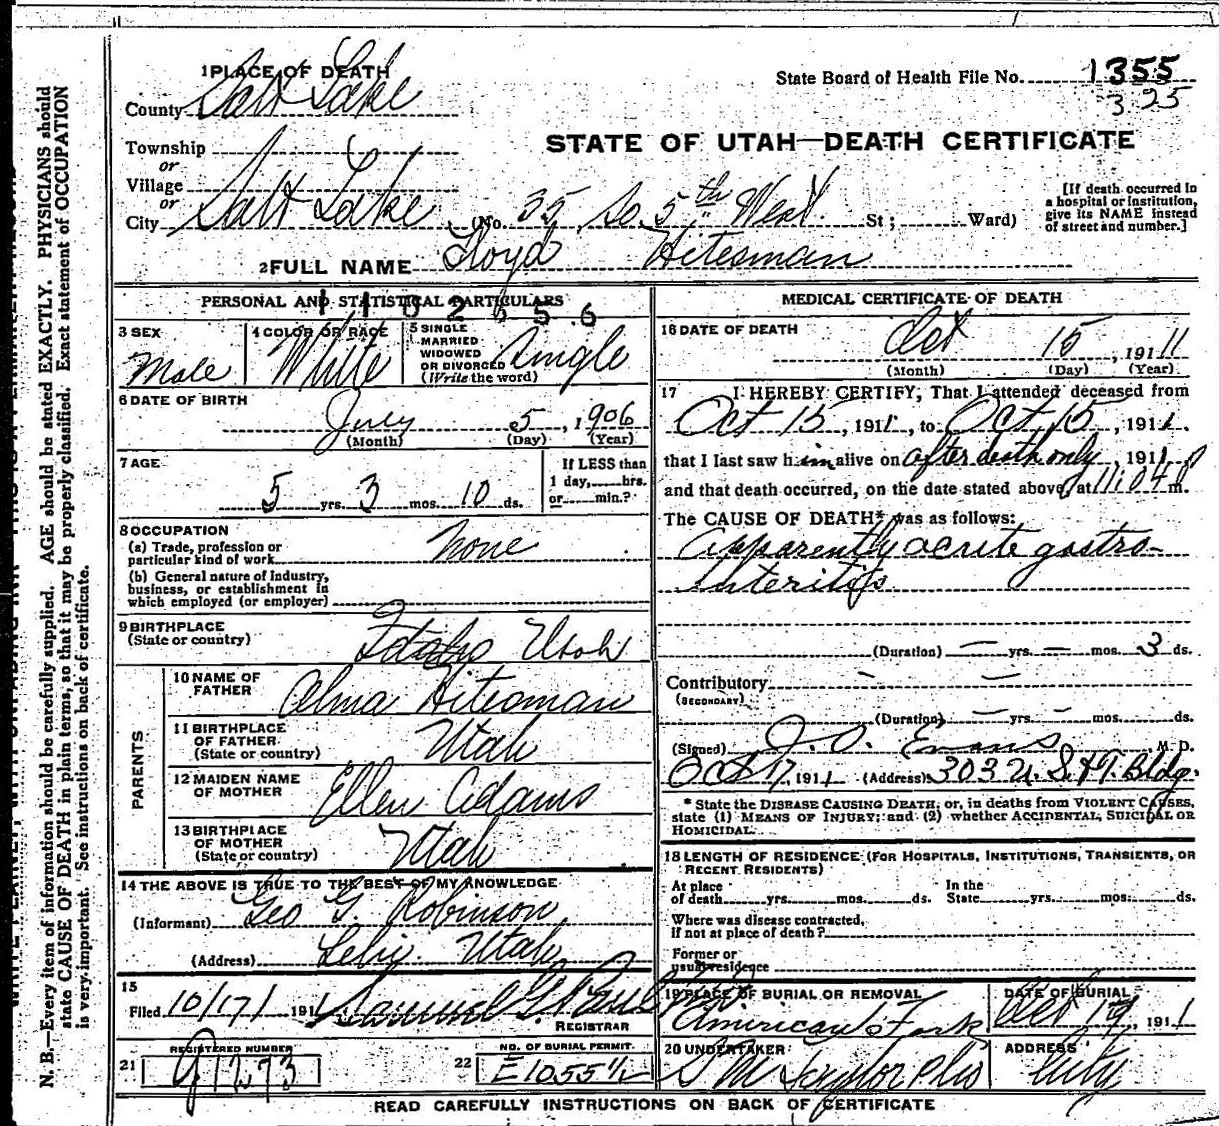 1 PLACE OF DEATH
County Salt Lake
State Board of Health File No. 1355
325
STATE OF UTAH—DEATH CERTIFICATE
Township
or
Village
or
City Salt Lake (No. 35 So 5th West St; Ward)
[If death occurred in a hospital or institution, give its NAME instead of street and number.]
2 FULL NAME Floyd Hitesman
PERSONAL AND STATISTICAL PARTICULARS
3 SEX Male
4 COLOR OR RACE White
5 SINGLE MARRIED WIDOWED OR DIVORCED (Write the word) Single
6 DATE OF BIRTH July 5, 1906
(Month) (Day) (Year)
7 AGE 5 yrs. 3 mos. 10 ds.
If LESS than 1 day, hrs. or min.?
8 OCCUPATION
(a) Trade, profession or particular kind of work None
(b) General nature of Industry, business, or establishment in which employed (or employer)
9 BIRTHPLACE (State or country) Utah
PARENTS
10 NAME OF FATHER Alma Hitesman
11 BIRTHPLACE OF FATHER (State or country) Utah
12 MAIDEN NAME OF MOTHER Ellen Adams
13 BIRTHPLACE OF MOTHER (State or country) Utah
14 THE ABOVE IS TRUE TO THE BEST OF MY KNOWLEDGE
(Informant) Geo G. Robinson,
(Address) Lehi Utah
15
Filed 10/17/ 191 Samuel G. Paul
REGISTRAR
21 REGISTERED NUMBER
22 NO. OF BURIAL PERMIT. E1055 1/2
MEDICAL CERTIFICATE OF DEATH
16 DATE OF DEATH Oct 15, 1911
(Month) (Day) (Year)
17 I HEREBY CERTIFY, That I attended deceased from
Oct 15, 1911, to Oct 15, 1911,
that I last saw him alive on after death only, 1911
and that death occurred, on the date stated above, at m.
The CAUSE OF DEATH* was as follows:
Apparently acute gastro-
Interitis
(Duration) — yrs. — mos. 3 ds.
Contributory
(SECONDARY)
(Duration) — yrs. — mos. ds.
(Signed) J. O. Evans M. D.
Oct 17, 1911 (Address) 303 U. S. & T. Bldg.
* State the DISEASE CAUSING DEATH, or, in deaths from VIOLENT CAUSES, state (1) MEANS OF INJURY; and (2) whether ACCIDENTAL, SUICIDAL OR HOMICIDAL.
18 LENGTH OF RESIDENCE (FOR HOSPITALS, INSTITUTIONS, TRANSIENTS, OR RECENT RESIDENTS)
At place of death yrs. mos. ds.
In the State yrs. mos. ds.
Where was disease contracted, if not at place of death?
Former or usual residence
19 PLACE OF BURIAL OR REMOVAL American Fork
DATE OF BURIAL Oct 19, 1911
20 UNDERTAKER S M Taylor
ADDRESS City
READ CAREFULLY INSTRUCTIONS ON BACK OF CERTIFICATE
N. B.—Every item of information should be carefully supplied. AGE should be stated EXACTLY. PHYSICIANS should
state CAUSE OF DEATH in plain terms, so that it may be properly classified. Exact statement of OCCUPATION
is very important. See instructions on back of certificate.